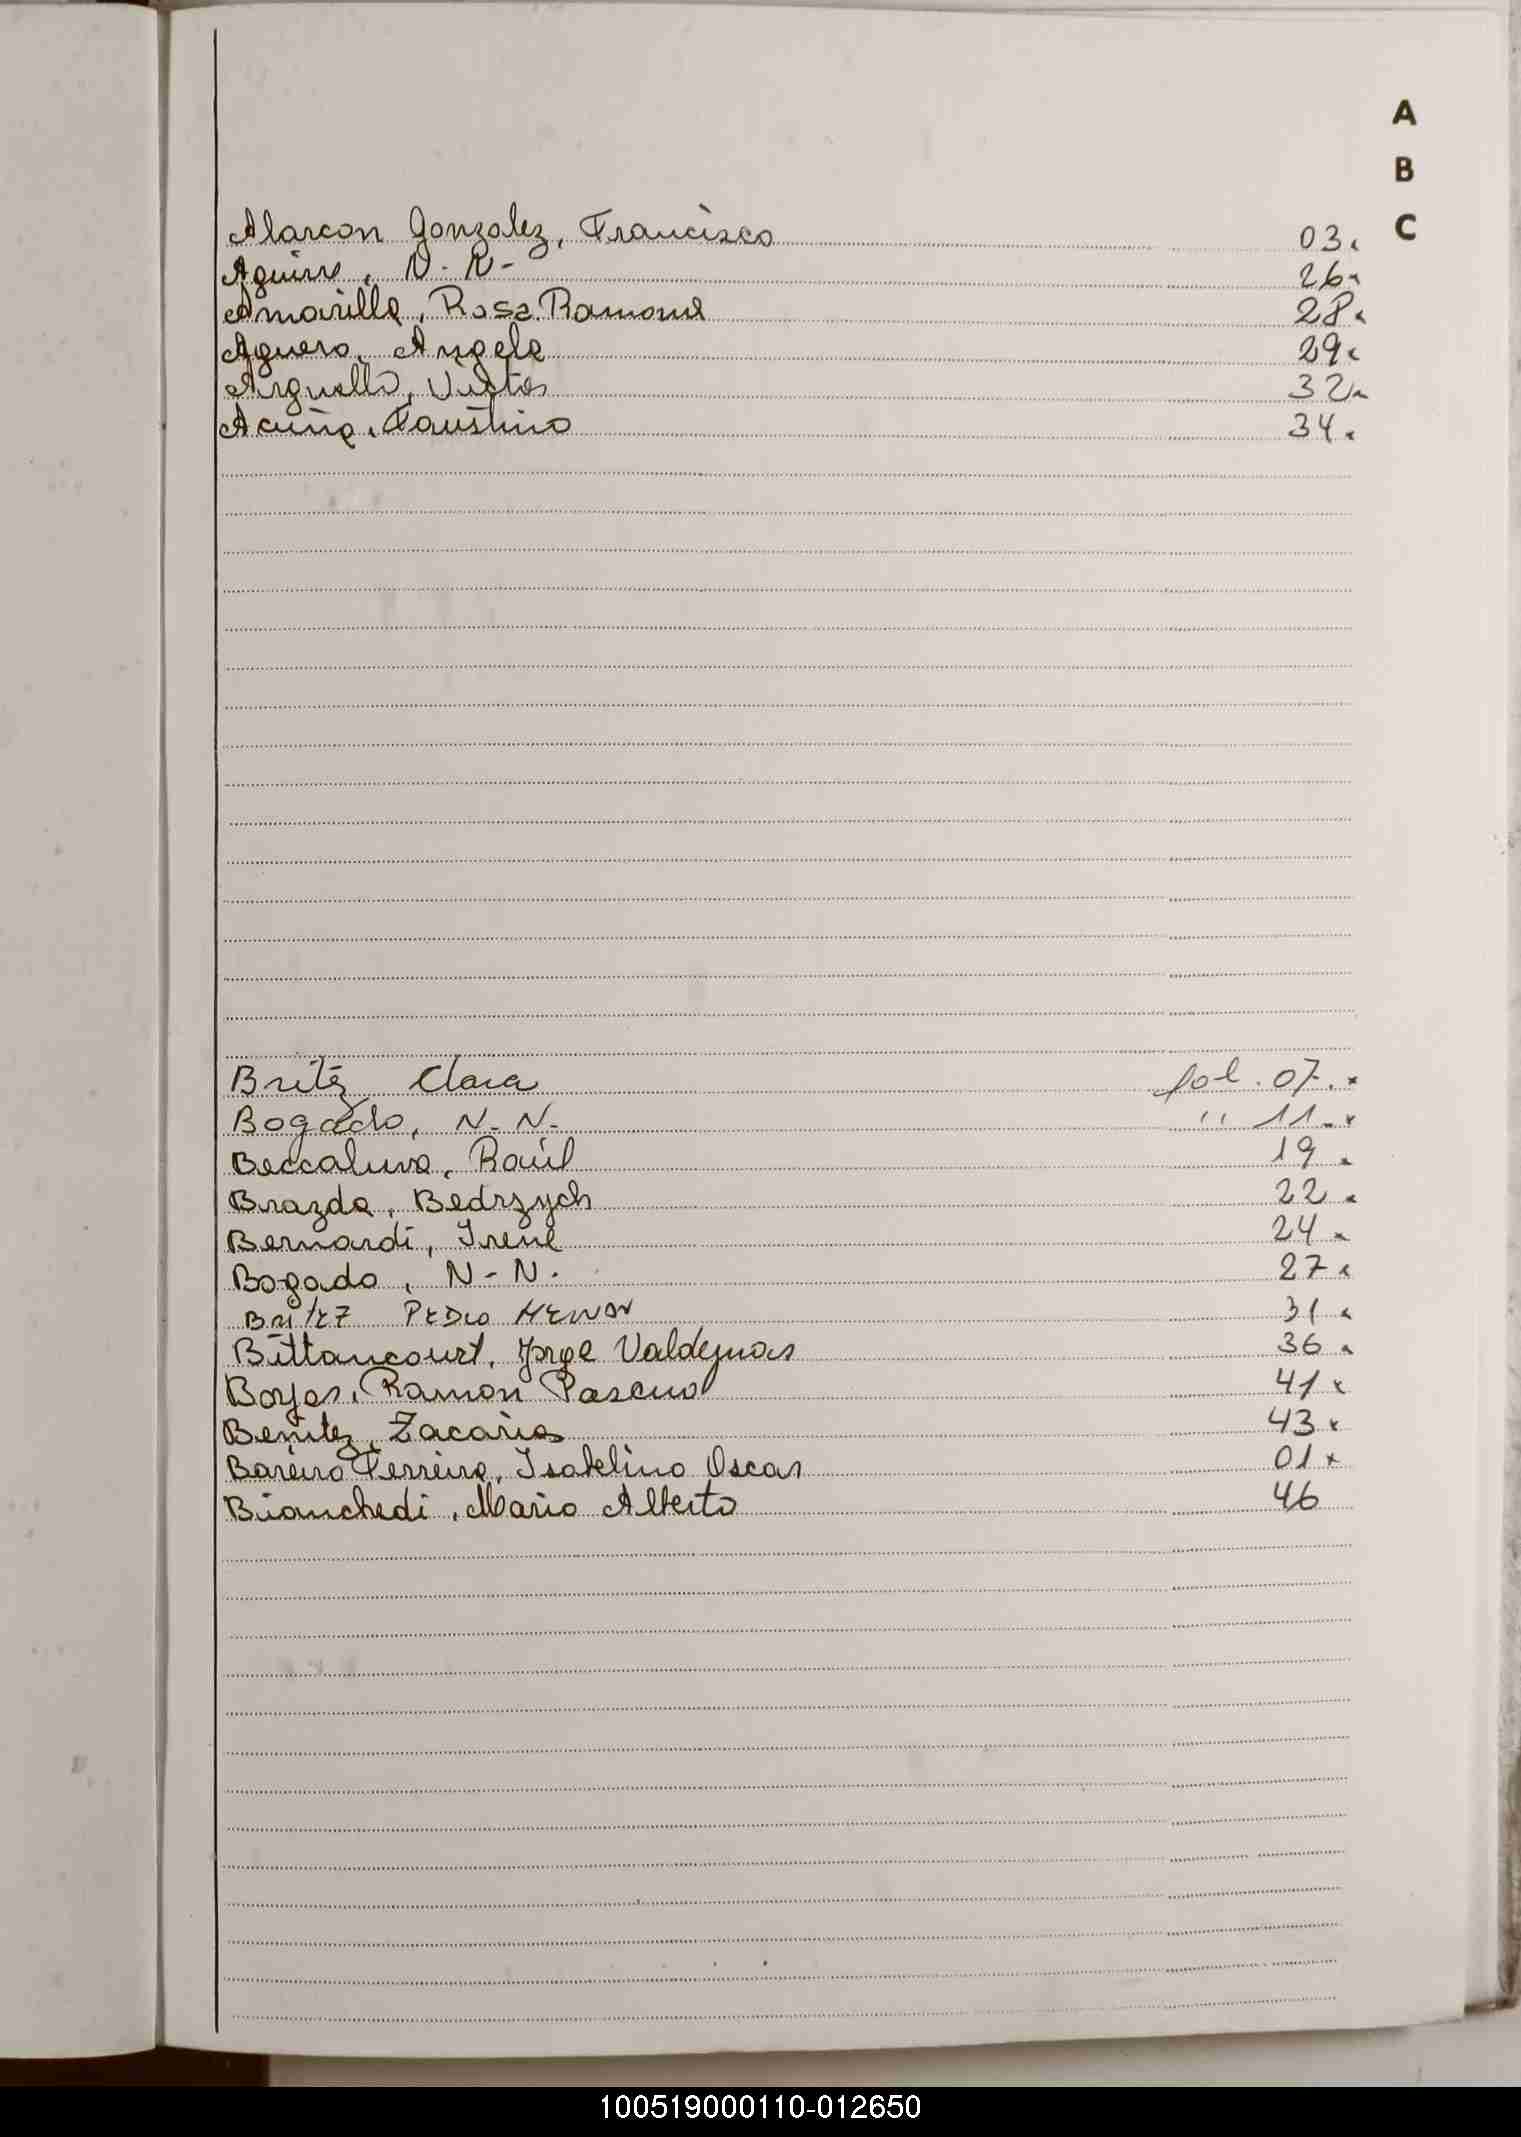 A
B
C
Alarcon Gonzalez, Francisco 03.
Aguirre, N. N- 26.
Amarilla, Rosa Ramona 28.
Aguero, Angela 29.
Arguello, 32.
Acuña, Faustino 34.
Britez Clara fol. 07.
Bogado, N- N- " 11.
Beccaluva, Raúl 19.
Brazda, Bedrzych 22.
Bernardi, Irene 24.
Bogado, N-N. 27.
Britez Pedro Menor 31.
Bittancourt, Jorge Valdemar 36.
Ramon 41
Benitez, Zacarias 43
Bareiro Ferreira, Isabelino Oscar 01
Bianchedi, Mario Alberto 46
100519000110-012650